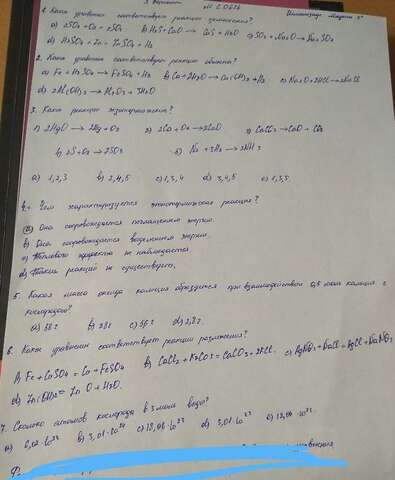 3 Вариант
1. Какое уравнение соответствует реакции замещения?
a) 2SO₂+O₂ = 2SO₃ b) H₂S+CaO → CaS+H₂O c) SO₂+Na₂O → Na₂SO₃
d) H₂SO₄+Zn = ZnSO₄+H₂
2. Какое уравнение соответствует реакции обмена?
a) Fe+H₂SO₄ → FeSO₄+H₂ b) Ca+2H₂O → Ca(OH)₂+H₂ c) Na₂O+2HCl → 2NaCl
d) 2Al(OH)₃ → Al₂O₃+3H₂O
3. Какие реакции экзотермические?
1) 2HgO → 2Hg+O₂ 2) 2Ca+O₂ → 2CaO 3) CaCO₃ → CaO+CO₂
4) 2S+O₂ → 2SO₃ 5) N₂+3H₂ → 2NH₃
a) 1,2,3 b) 2,4,5 c) 1,3,4 d) 3,4,5 e) 1,3,5.
4. Чем характеризуется экзотермическая реакция?
a) Она сопровождается поглощением энергии.
b) Она сопровождается выделением энергии.
c) Теплового эффекта не наблюдается.
d) Таких реакций не существует.
5. Какая масса оксида кальция образуется при взаимодействии 0,5 моль кальция с
кислородом?
a) 58г b) 28г c) 56г d) 2,8г.
6. Какое уравнение соответствует реакции разложения?
a) Fe+CoSO₄ = Co+FeSO₄ b) CaCl₂+K₂CO₃ = CaCO₃+2KCl. c) AgNO₃+NaCl = AgCl+NaNO₃
d) Zn(OH)₂ = ZnO+H₂O.
7. Сколько атомов кислорода в 3 моль воды?
a) 6,02·10²³ b) 3,01·10²⁴ c) 18,06·10²³ d) 3,01·10²³ e) 12,04·10²³.